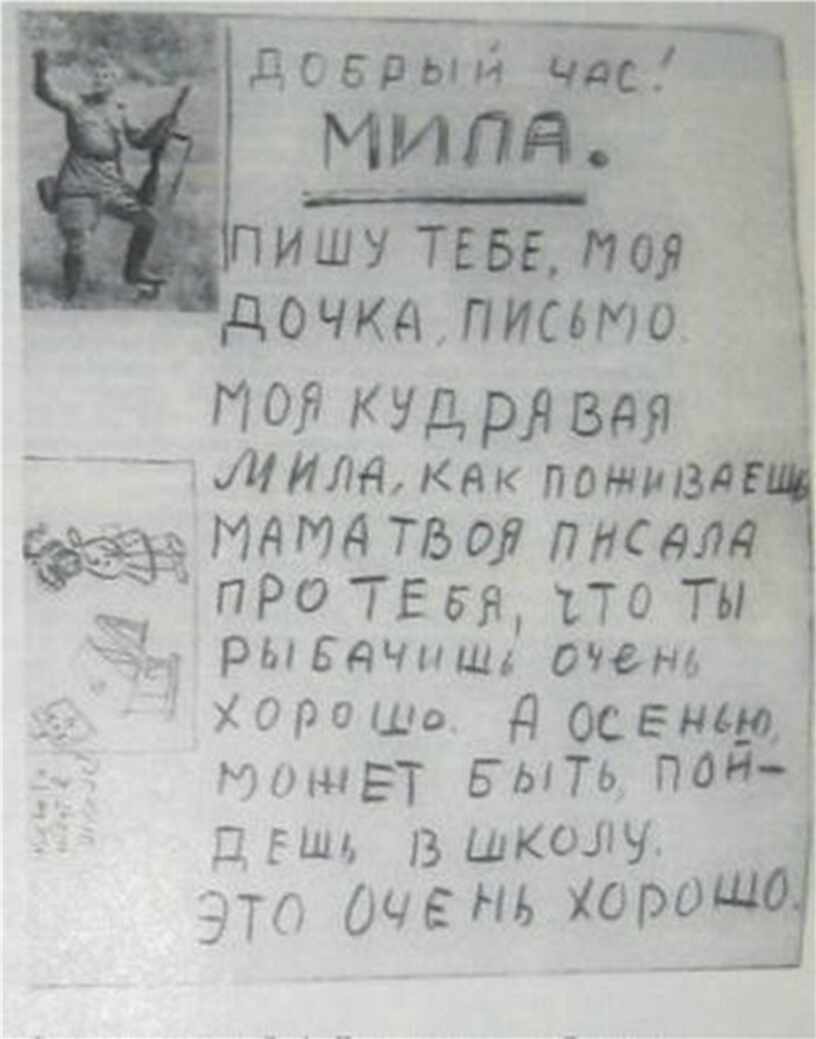 ДОБРЫЙ ЧАС!
МИЛА.
ПИШУ ТЕБЕ, МОЯ
ДОЧКА, ПИСЬМО.
МОЯ КУДРЯВАЯ
МИЛА, КАК ПОЖИВАЕШЬ
МАМА ТВОЯ ПИСАЛА
ПРО ТЕБЯ, ЧТО ТЫ
РЫБАЧИШЬ ОЧЕНЬ
ХОРОШО. А ОСЕНЬЮ,
МОЖЕТ БЫТЬ, ПОЙ-
ДЕШЬ В ШКОЛУ.
ЭТО ОЧЕНЬ ХОРОШО.